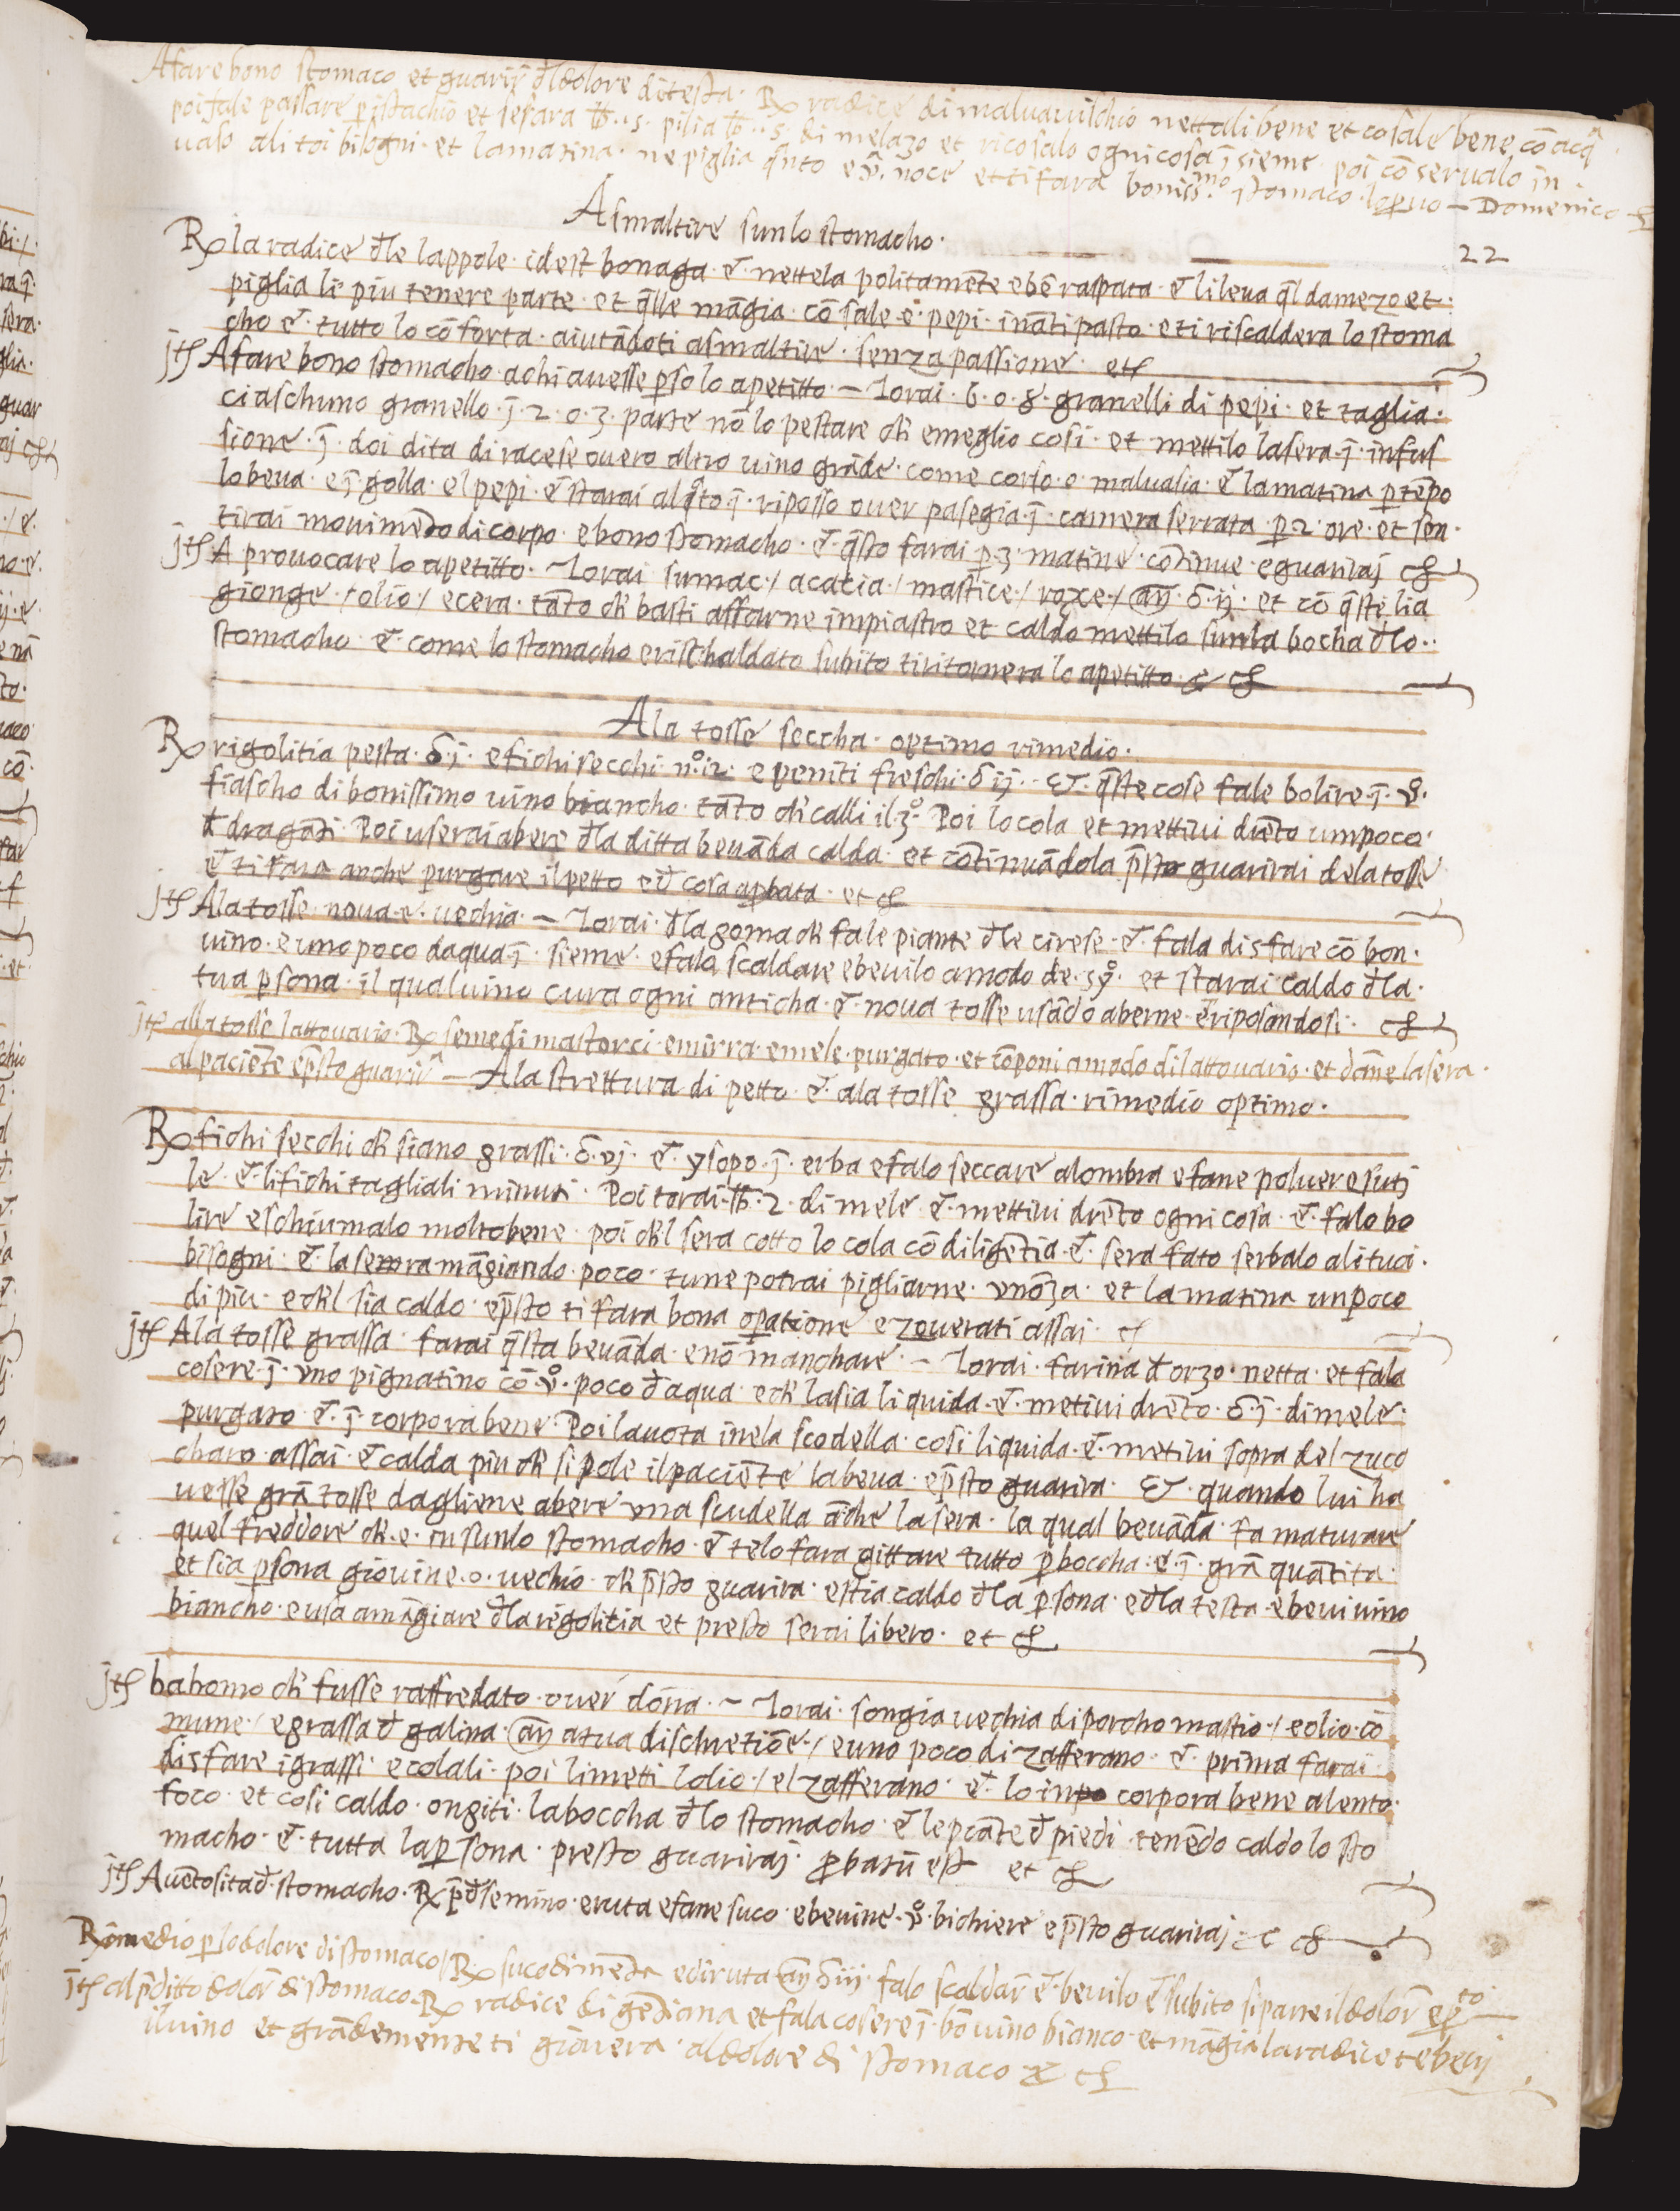 A fare bono stomaco et guarir̃ đl dolore di testa · Rx radice di maluauischio nettali bene et cosale bene cõ acq̃
poi fale passare p istachio et se sara lb ·· s · pilia lb ·· s · di melazo et ricosalo ogni cosa j̃ sieme · poi cõ serualo in
uaso ali toi bisogni · et la matina · ne piglia q̃nto e ṽ · noce et ti fara boniss.mo stomaco · lo p̱uo — Domenico
A smaltire sun lo stomacho ·
22
Rx la radice đle lappole · idest bonaga · e · nettela politamẽte e bẽ raspata · e li leua q̃l damezo et ·
piglia le piu tenere parte · et q̃lle mãgia · cõ sale · e · pepi · inãti pasto · e ti riscaldera lo stoma
cho e · tutto lo cõforta · aiutãdoti a smaltire · senza passione · etc
jtẽ A fare bono stomacho · a chi auesse p̱so lo apetitto · — Torai · 6 · o · 8 · granelli di pepi · et taglia ·
ciaschuno granello · j̃ · 2 · o · 3 · parte nõ lo pestare ch̃ e meglio cosi · et mettilo la sera · j̃ · infus
sione · j̃ · doi dita di racese ouero altro uino grãde · come corso · o · maluasia · e la matina p̱ tẽpo
lo beua · e j̃ golla · el pepi · e starai alq̃to j̃ · riposso ouer pasegia · j̃ · camera serrata · p̱ 2 · ore · et sen ·
tirai mouimẽto di corpo · e bono stomacho · e · q̃sto farai p̱ · 3 · matine · cõtinue · e guariraj
jtẽ A prouocare lo apetitto · — Torai sumac · / acacia · / mastice · / roxe · / añ · ℥ · ij · et cõ q̃ste lia
gionge · / olio · / e cera · tãto ch̃ basti affarne impiastro et caldo mettilo sun la bocha đlo ··
stomacho · e · come lo stomacho e rischaldato subito ti ritornera lo apetitto · &
A la tosse seccha · optimo rimedio ·
Rx rigolitia pesta · ℥ · j · e fichi secchi · n.º 12 · e peniti freschi · ℥ ij ·· Et · q̃ste cose fale bolire · j̃ · ṽ ·
fiascho di bonissimo uino biancho · tãto ch̃ calli il 3º · Poi lo cola et mettiui drẽto un poco ·
đ dragãti · Poi userai a bere đla ditta beuãda calda · et cõtinuãdola p̃sto guarirai de la tosse
e ti fara anche purgare il petto e đ cosa ap̱bata · et
jtẽ Ala tosse · noua · e · uechia · — Torai · đla goma ch̃ fa le piante đle cirese · e · fala disfare cõ bon ·
uino · e uno poco daqua j̃ · sieme · e falo scaldare e beuilo a modo de · syº · et starai caldo đla ·
tua p̱sona · il qual uino cura ogni anticha · e · noua tosse usãdo a berne · e riposandosi ·
jtẽ alla tosse lattouario · Rx seme di mastorci e mirra e mele · purgato · et cõponi a modo di lattouario · et dãne la sera ·
al paciẽte e p̃sto guarir̃ — A la strettura di petto · e · ala tosse grassa · rimedio optimo ·
Rx fichi secchi ch̃ siano grassi · ℥ · vj · e · ysopo · j̃ · erba e falo seccare a lombra e fane poluere suti
le · e · li fichi tagliali minuti · Poi torai · lb · 2 · di mele · e · mettiui drẽto ogni cosa · e · falo bo
lire e schiumalo molto bene · poi ch̃l sera cotto lo cola cõ diligẽtia · e · sera fato serbalo ali tuoi ·
bisogni · e · la sera mãgiando · poco · tu ne potrai pigliarne · vnõza · et la matina un poco
di piu · e ch̃l sia caldo · e p̃sto ti fara bona op̱atione e zouerati assai ·
jtẽ A la tosse grassa · farai q̃sta beuãda · e nõ manchare · — Torai · farina đ orzo · netta · et fala
cosere · j̃ · vno pignatino cõ · vº · poco đ aqua · e ch̃ la sia liquida · e · metiui drẽto · ℥ · j · di mele ·
purgato · e · j̃ · corpora bene · Poi la uota in ela scodella · cosi liquida · e · metiui sopra del zuco
charo · assai · e calda piu ch̃ si pole il paciẽte la beua · e p̃sto guarira · Et · quando lui ha
uesse grã tosse dagliene a bere vna scudella ãche la sera · la qual beuãda · fa maturare
quel freddore ch̃ · e · in sun lo stomacho · e telo fara gittare tutto p̱ boccha · e · j̃ · grã quãtita ·
et sia p̱sona giouine · o · uechio · ch̃ p̃sto guarira · e stia caldo đla p̱sona · e đla testa · e beui uino
biancho · e usa a mãgiare đla rigolitia et presto serai libero · et
jtẽ ha homo ch̃ fusse raffredato · ouer dõna · ~ Torai · songia uechia di porcho mastio · / e olio · cõ
mune · / e grassa đ galina · añ a tua dischretiõe · / e uno poco di zafferano · e · prima farai ·
disfare i grassi · e colali · poi li metti lolio · / el zafferano · e · lo in corpora bene a lento ·
foco · et cosi caldo · ongiti · la boccha đlo stomacho · e le piãte đ piedi · tenẽdo caldo lo sto
macho · e · tutta la p̱sona · presto guariraj · p̱batũ est et
jtẽ A uẽtosita đ · stomacho · Rx p̃đsemino · e ruta e fane suco · e beuine · vº · bichiere e p̃sto guariraj · &c
Rimedio p̱ lo dolore di stomaco / Rx suco di mẽta e di ruta añ ℥ iij · falo scaldar̃ e · beuilo e subito si parte il dolor̃ e p̱to
jtẽ al p̃ditto dolor̃ di stomaco · Rx radice di gẽtiana et fala cosere j̃ · bõ uino bianco · et mãgia la radice et e beuj
il uino et grãdemente ti giouera · al dolore di stomaco &